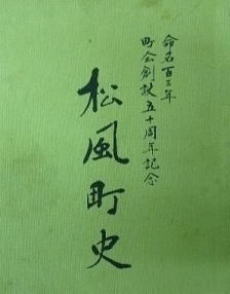 命名百三年
町会創設五十周年記念
松風町史